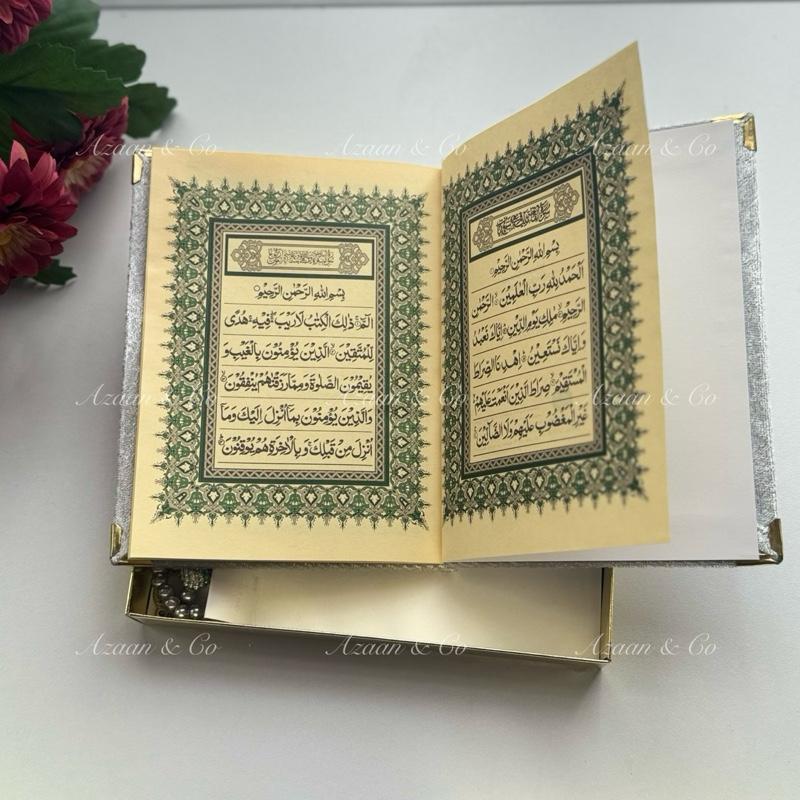 بِسْمِ اللهِ الرَّحْمٰنِ الرَّحِيْمِ
اَلْحَمْدُ لِلّٰهِ رَبِّ الْعٰلَمِيْنَ الرَّحْمٰنِ
الرَّحِيْمِ مٰلِكِ يَوْمِ الدِّيْنِ اِيَّاكَ نَعْبُدُ
وَاِيَّاكَ نَسْتَعِيْنُ اِهْدِنَا الصِّرَاطَ
الْمُسْتَقِيْمَ صِرَاطَ الَّذِيْنَ اَنْعَمْتَ عَلَيْهِمْ
غَيْرِ الْمَغْضُوْبِ عَلَيْهِمْ وَلَا الضَّآلِّيْنَ
بِسْمِ اللهِ الرَّحْمٰنِ الرَّحِيْمِ
الٓمّٓ ذٰلِكَ الْكِتٰبُ لَا رَيْبَ فِيْهِ هُدًى
لِّلْمُتَّقِيْنَ الَّذِيْنَ يُؤْمِنُوْنَ بِالْغَيْبِ وَ
يُقِيْمُوْنَ الصَّلٰوةَ وَمِمَّا رَزَقْنٰهُمْ يُنْفِقُوْنَ
وَالَّذِيْنَ يُؤْمِنُوْنَ بِمَآ اُنْزِلَ اِلَيْكَ وَمَآ
اُنْزِلَ مِنْ قَبْلِكَ وَبِالْاٰخِرَةِ هُمْ يُوْقِنُوْنَ
Azaan & Co Azaan & Co Azaan & Co
Azaan & Co Azaan & Co Azaan & Co
Azaan & Co Azaan & Co Azaan & Co